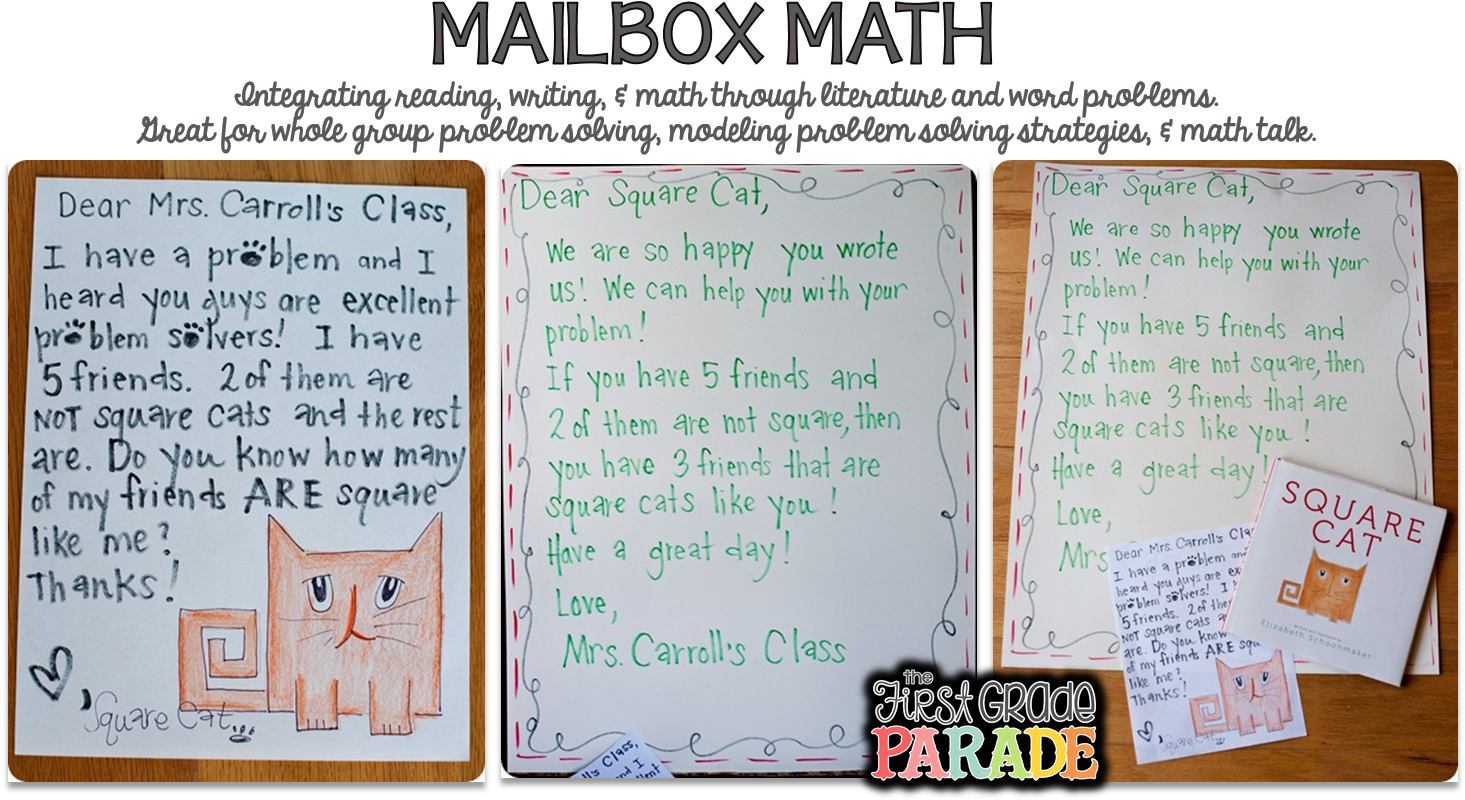 MAILBOX MATH
Integrating reading, writing, & math through literature and word problems.
Great for whole group problem solving, modeling problem solving strategies, & math talk.
Dear Mrs. Carroll's Class,
I have a problem and I
heard you guys are excellent
problem solvers! I have
5 friends. 2 of them are
NOT square cats and the rest
are. Do you know how many
of my friends ARE square
like me?
Thanks!
,
Square Cat
Dear Square Cat,
We are so happy you wrote
us! We can help you with your
problem!
If you have 5 friends and
2 of them are not square, then
you have 3 friends that are
square cats like you!
Have a great day!
Love,
Mrs. Carroll's Class
ll's Class,
and I
ellent
Dear Square Cat,
We are so happy you wrote
us! We can help you with your
problem!
If you have 5 friends and
2 of them are not square, then
you have 3 friends that are
square cats like you!
Have a great day!
Love,
Mrs.
Dear Mrs. Carroll's Cla
I have a problem an
heard you guys are ex
problem solvers! I
5 friends. 2 of the
NOT square cats an
are. Do you know
of my friends ARE squ
like me?
Thanks!
Square Cat
SQUARE
CAT
Written and illustrated by
Elizabeth Schoonmaker
the
First Grade
PARADE